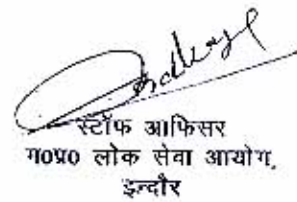 स्टॉफ आफिसर
म0प्र0 लोक सेवा आयोग,
इन्दौर